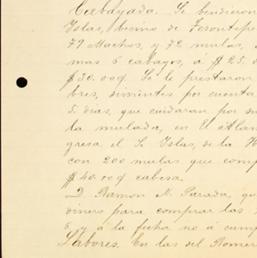 Cabayada. Se bendieron
Islas, besino de
79 Machos, y 72 mulas,
mas 6 cabayos, á $25.0
$30.00¢. Se le prestaron
bres, sirvientes por cuenta
5 dias, que cuidaran por su
la mulada, en El Atlan
gresa el Sr Islas, de la H
con 200 mulas que comp
$40.00¢ cabesa.
D. Ramon M. Parada, qu
dinero para comprar las
6, y á la fecha no á cump
Labores. En las del Romer